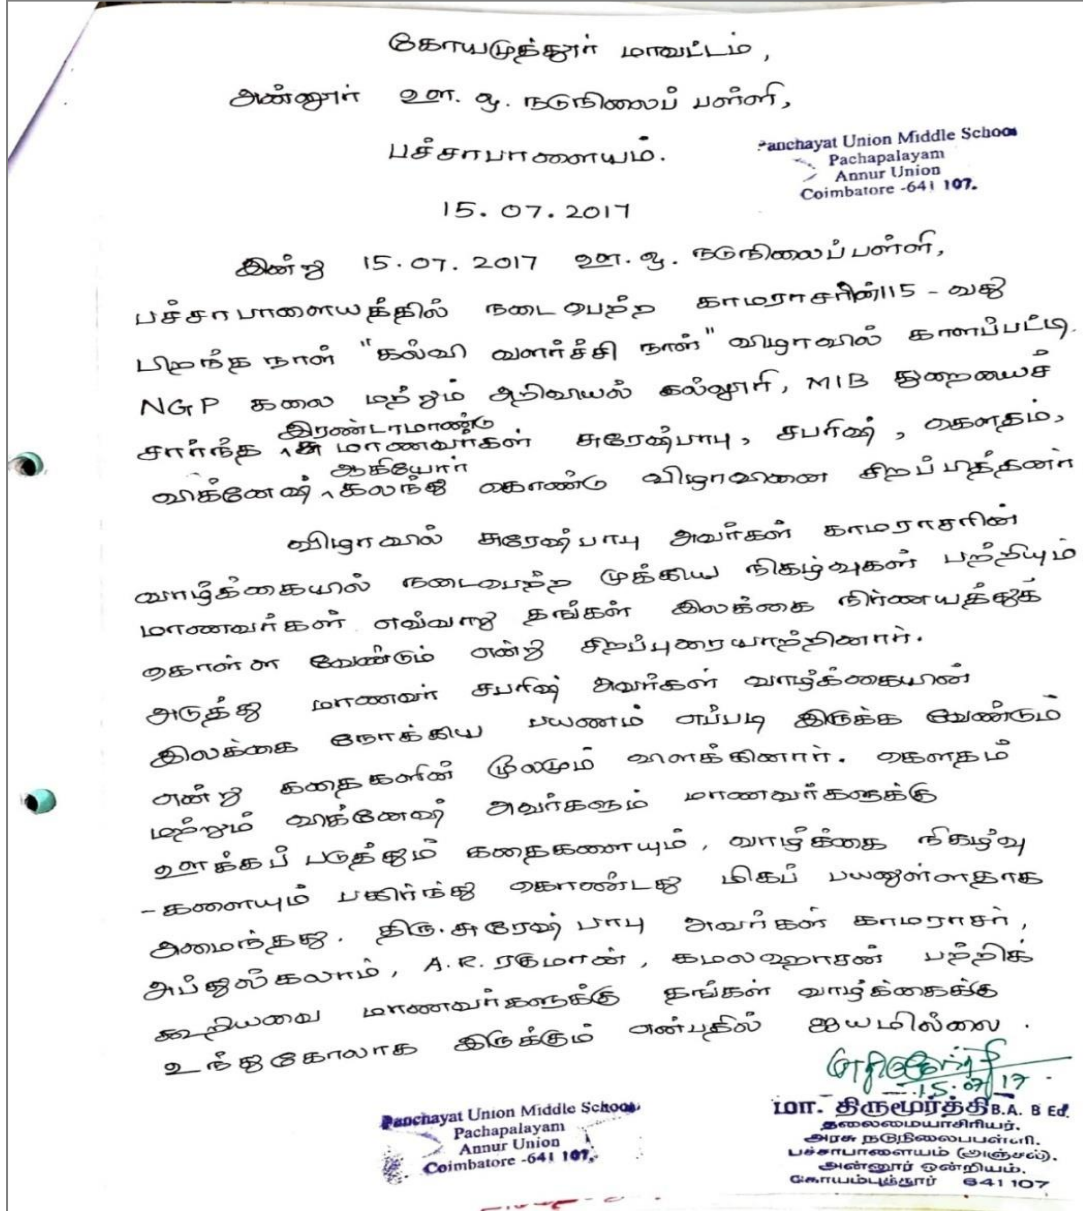 கோயமுத்தூர் மாவட்டம்,
அன்னூர் ஊ. ஒ. நடுநிலைப் பள்ளி,
பச்சாபாளையம்.
Panchayat Union Middle School
Pachapalayam
Annur Union
Coimbatore -641 107.
15.07.2017
இன்று 15.07.2017 ஊ. ஒ. நடுநிலைப்பள்ளி,
பச்சாபாளையத்தில் நடைபெற்ற காமராசரின் 115 - வது
பிறந்த நாள் "கல்வி வளர்ச்சி நாள்" விழாவில் காளப்பட்டி
NGP கலை மற்றும் அறிவியல் கல்லூரி, MIB துறையைச்
சார்ந்த இரண்டாமாண்டு மாணவர்கள் சுரேஷ்பாபு, சபரிஷ், கௌதம்,
விக்னேஷ் ஆகியோர் கலந்து கொண்டு விழாவினை சிறப்பித்தனர்
விழாவில் சுரேஷ்பாபு அவர்கள் காமராசரின்
வாழ்க்கையில் நடைபெற்ற முக்கிய நிகழ்வுகள் பற்றியும்
மாணவர்கள் எவ்வாறு தங்கள் இலக்கை நிர்ணயத்துக்
கொள்ள வேண்டும் என்று சிறப்புரையாற்றினார்.
அடுத்து மாணவர் சபரிஷ் அவர்கள் வாழ்க்கையின்
இலக்கை நோக்கிய பயணம் எப்படி இருக்க வேண்டும்
என்று கதைகளின் மூலமும் விளக்கினார். கௌதம்
மற்றும் விக்னேஷ் அவர்களும் மாணவர்களுக்கு
ஊக்கப் படுத்தும் கதைகளையும், வாழ்க்கை நிகழ்வு
-களையும் பகிர்ந்து கொண்டது மிகப் பயனுள்ளதாக
அமைந்தது. திரு. சுரேஷ் பாபு அவர்கள் காமராசர்,
அப்துல்கலாம், A.R. ரகுமான், கமலஹாசன் பற்றிக்
கூறியவை மாணவர்களுக்கு தங்கள் வாழ்க்கைக்கு
உந்துகோலாக இருக்கும் என்பதில் ஐயமில்லை.
15.07.17
Panchayat Union Middle School
Pachapalayam
Annur Union
Coimbatore -641 107.
மா. திருமூர்த்தி B.A. B Ed.
தலைமையாசிரியர்.
அரசு நடுநிலைபபள்ளி.
பச்சாபாளையம் (அஞ்சல்).
அன்னூர் ஒன்றியம்.
கோயம்புத்தூர் 641107